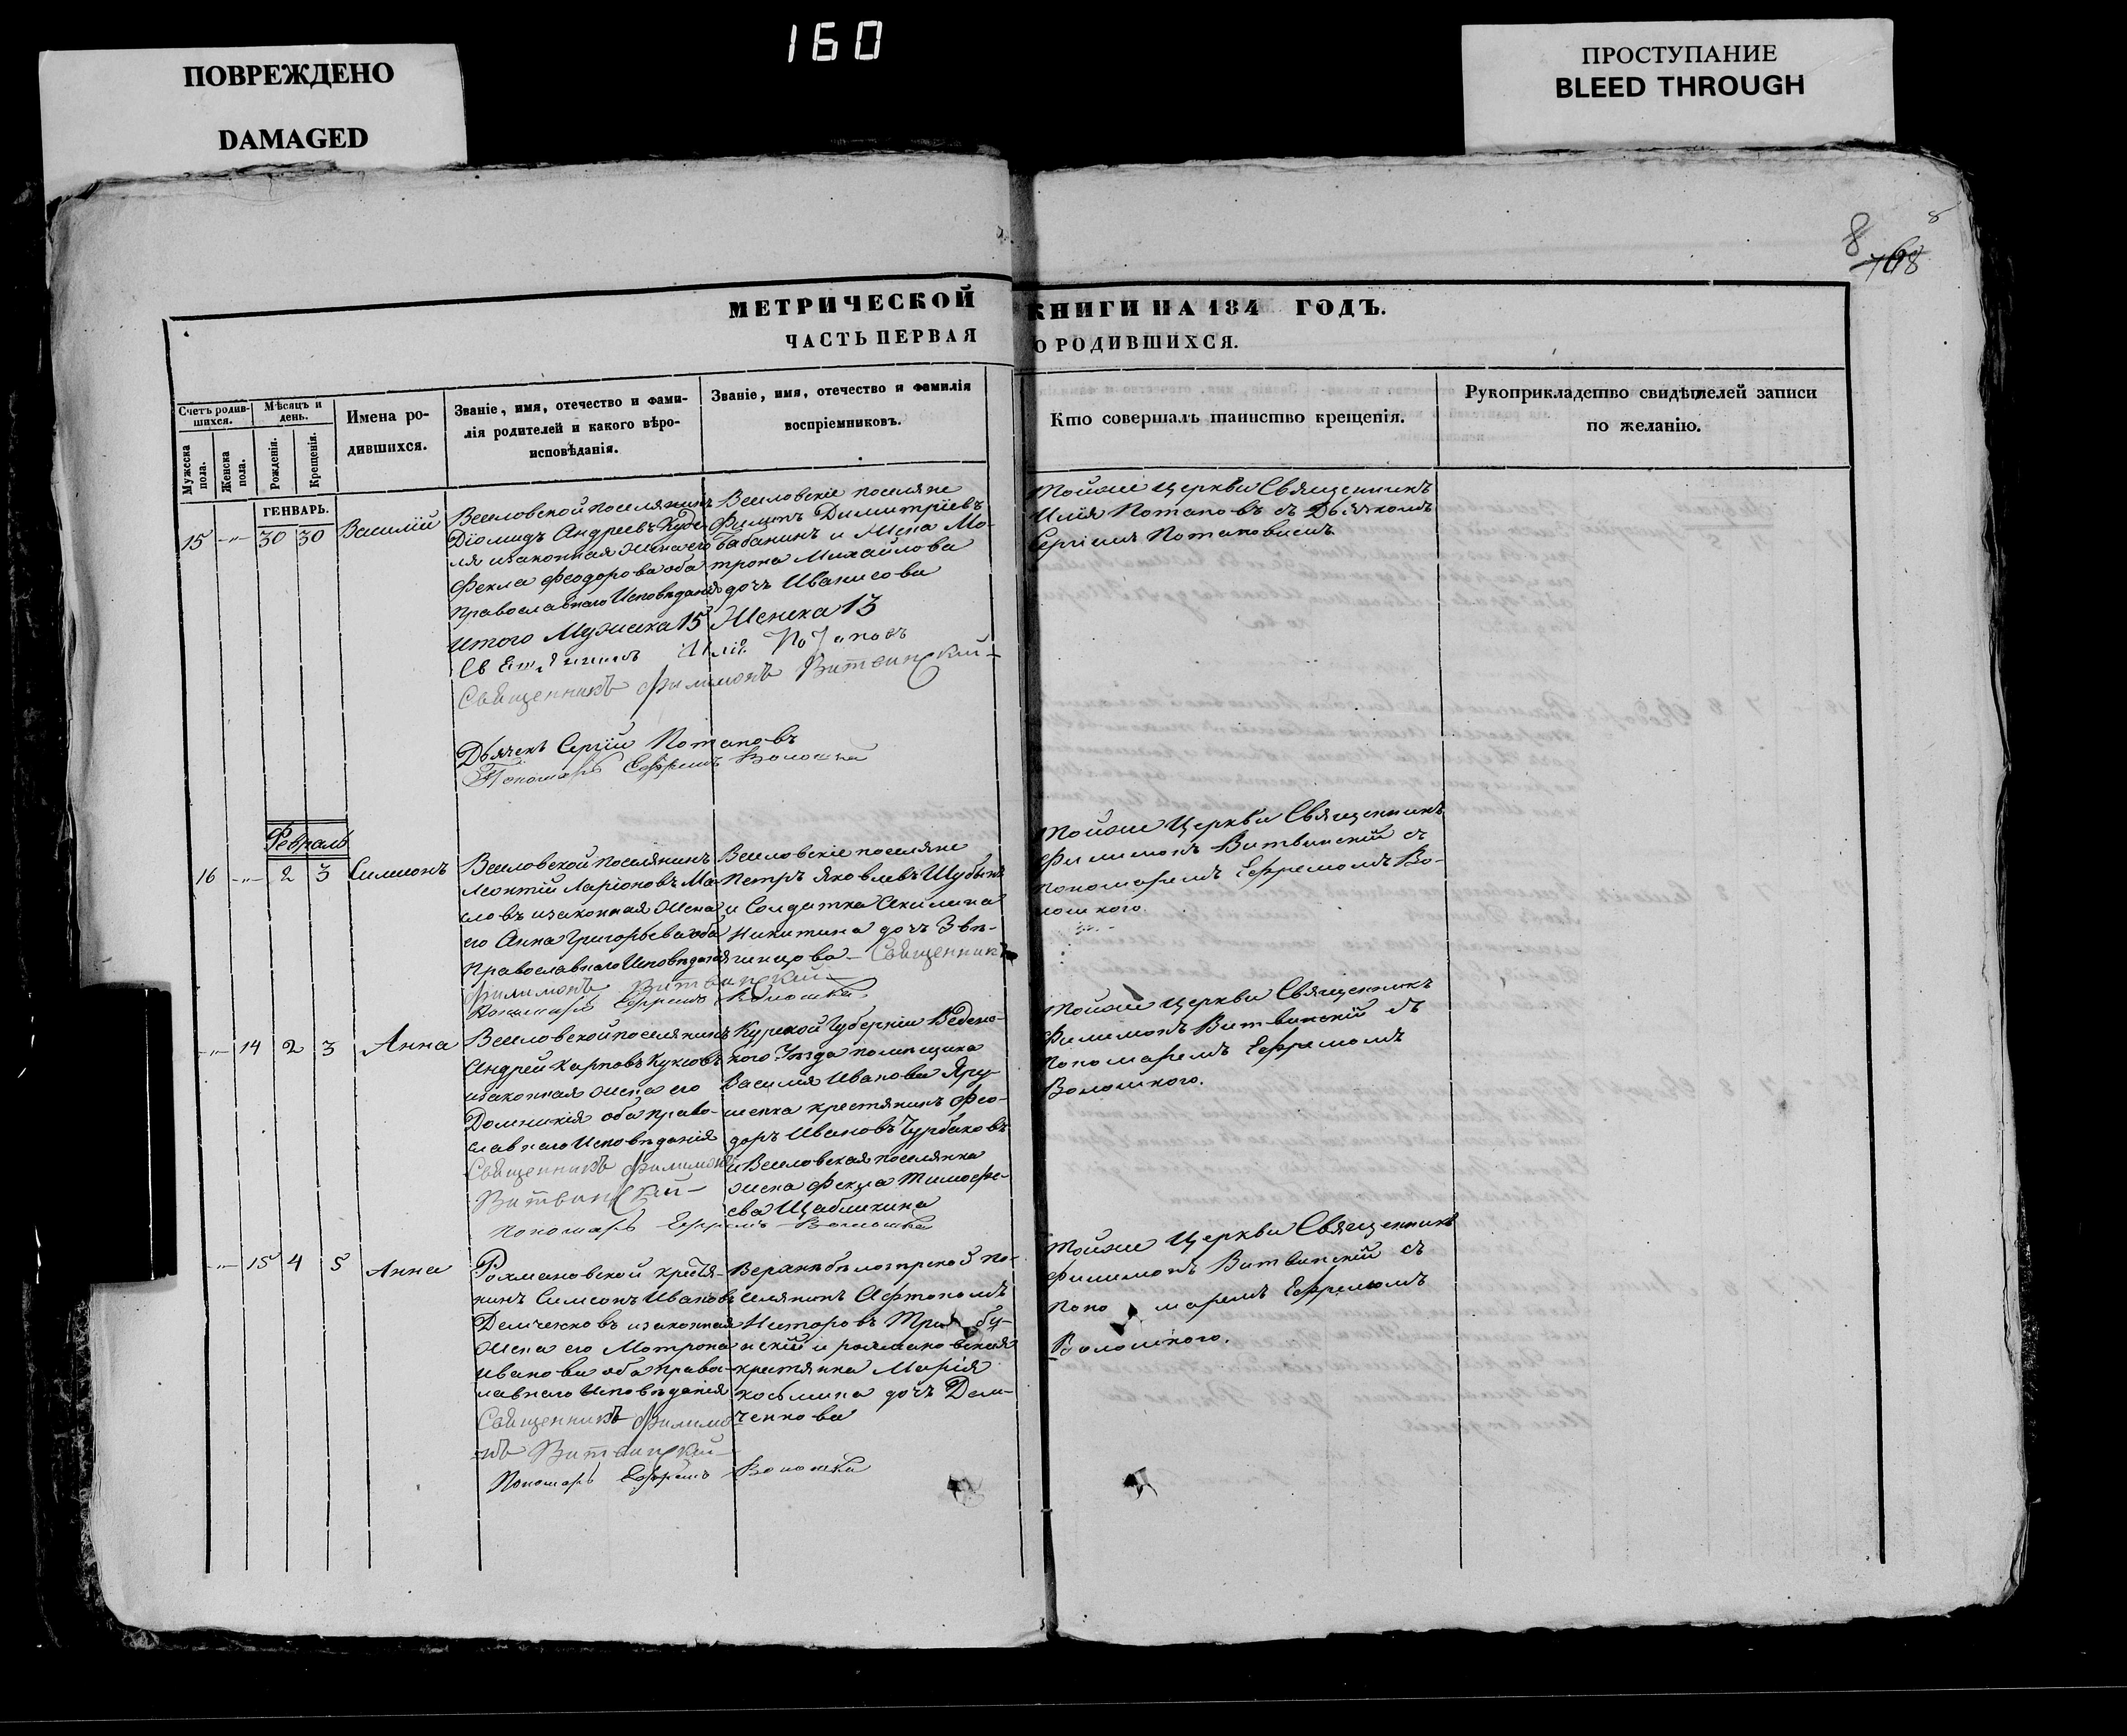 160
ПОВРЕЖДЕНО
DAMAGED
ПРОСТУПАНИЕ
BLEED THROUGH
8
8
168
МЕТРИЧЕСКОЙ КНИГИ НА 184 ГОДЪ.
ЧАСТЬ ПЕРВАЯ О РОДИВШИХСЯ.
Счетъ родив-
шихся.
Мужеска
пола.
Женска
пола.
Мѣсяцъ и
день.
Рожденія.
Крещенія.
Имена ро-
дившихся.
Званіе, имя, отечество и фами-
лія родителей и какого вѣро-
исповѣданія.
Званіе, имя, отечество и фамилія
воспріемниковъ.
Кто совершалъ таинство крещенія.
Рукоприкладство свидѣтелей записи
по желанію.
ГЕНВАРЬ.
15 -„- 30 30 Василій
Веселовской поселянинъ
Діомидъ Андреевъ Кубе-
ля изаконная Жена его
Фекла Феодорова оба
православнаго Исповѣданія
Веселовскіе поселяне
Филипъ Димитріевъ
Бабанинъ и Жена Мо-
трона Михайлова
дочъ Иванисова
Тойже Церкви Священникъ
Илія Потаповъ съ Дьячкомъ
Сергіемъ Потаповымъ
Итого Мужеска 15 Женска 13
Священникъ Илій Потаповъ
Священникъ Филимонъ Витвинскій
Дьячекъ Сергій Потаповъ
Пономарь Ефремъ Волошка
Февраль
16 -„- 2 3 Симионъ
Веселовской поселянинъ
Леонтій Ларіоновъ Ма-
словъ изаконная Жена
его Анна Григорьева оба
православнаго Исповѣданія
Веселовскіе поселяне
Петръ Яковлевъ Шубинъ
и Солдатка Акилина
Никитина дочъ Звѣ-
гинцова - Священникъ
Филимонъ Витвинскій
Пономарь Ефремъ Волошка
Тойже Церкви Священникъ
Филимонъ Витвинскій съ
Пономаремъ Ефремомъ Во-
лошкого.
-„- 14 2 3 Анна
Веселовской поселянинъ
Андрей Карповъ Куксовъ
изаконная жена его
Домникія оба право-
славнаго Исповѣданія
Священникъ Филимонъ
Витвинскій
Пономарь Ефремъ Волошка
Курской Губерніи
кого Уѣзда помѣщика
Василія Иванова Яру-
шенка крестянинъ Фео-
доръ Ивановъ Чурбаковъ
и Веселовская поселянка
жена Фекла Тимофе-
ева Щаблыкина
Тойже Церкви Священникъ
Филимонъ Витвинскій съ
Пономаремъ Ефремомъ
Волошкого.
-„- 15 4 5 Анна
Рохмановской крестя-
нинъ Симеонъ Ивановъ
Демченковъ изаконная
Жена его Мотрона
Иванова оба правос-
лавнаго Исповѣданія
Священникъ Филимо-
нъ Витвинскій
Пономарь Ефремъ Волошка
по-
селянинъ Афтономъ
скій и рохмановская
крестянка Марія
косьмина дочъ Дем-
ченкова
Тойже Церкви Священникъ
Филимонъ Витвинскій съ
Поно маремъ Ефремомъ
Волошкого.